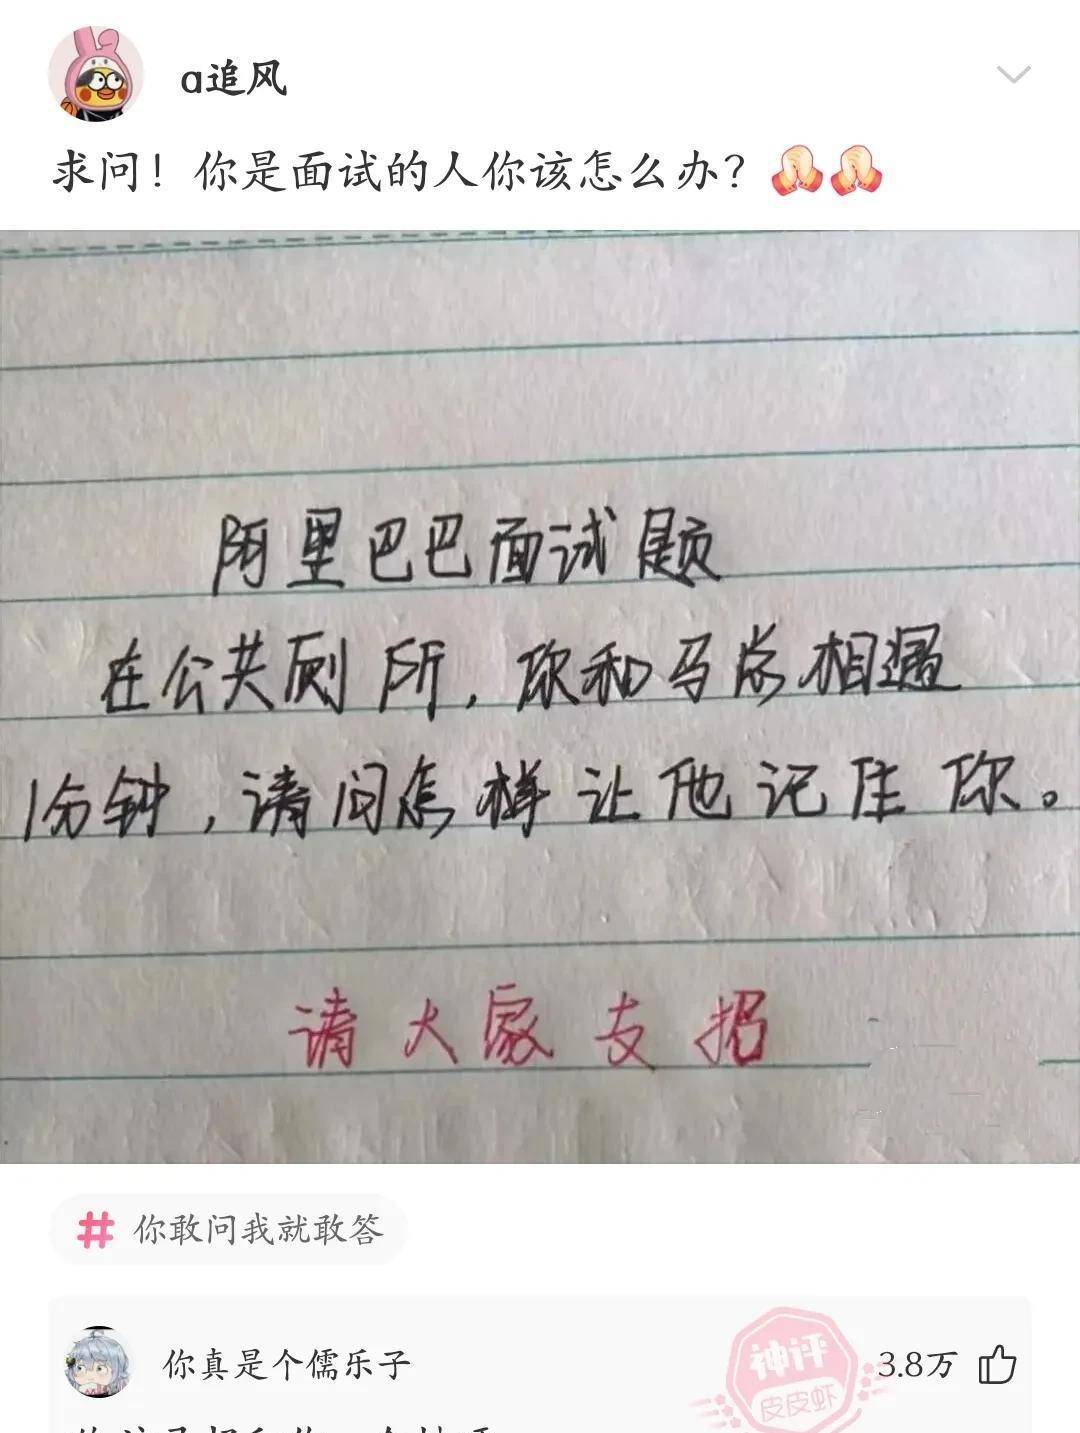 a追风
求问！你是面试的人你该怎么办？
阿里巴巴面试题
在公共厕所，你和马总相遇
1分钟，请问怎样让他记住你。
请大家支招
# 你敢问我就敢答
你真是个儒乐子
神评
3.8万
皮皮虾